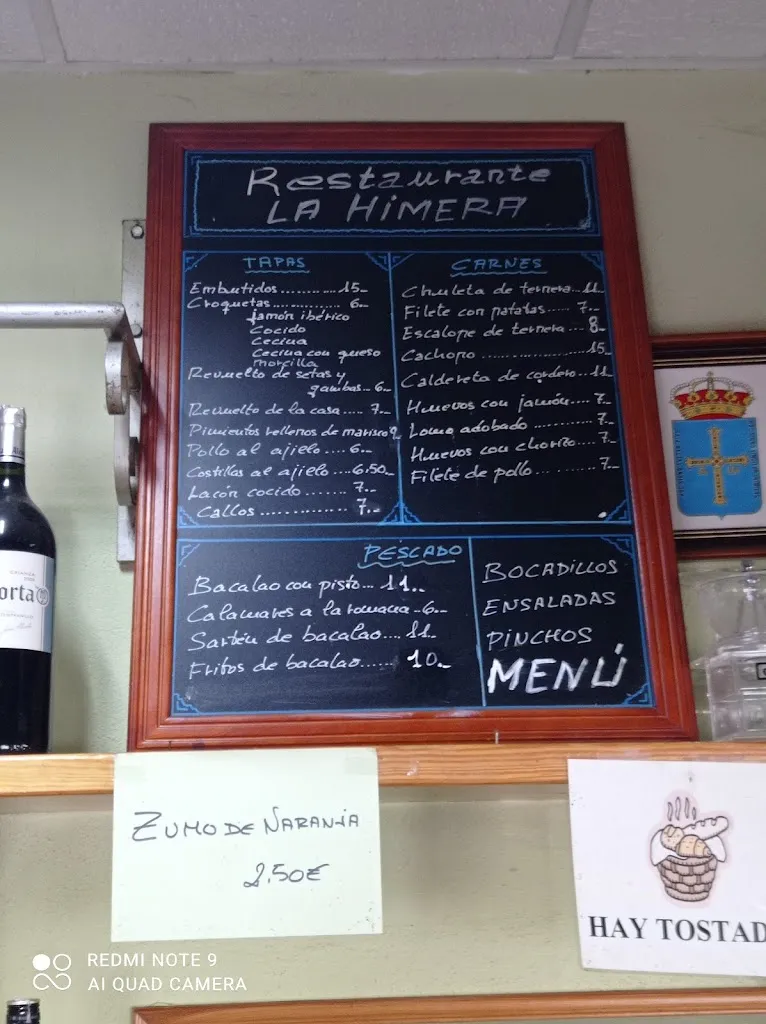 Restaurante
LA HIMERA
TAPAS
Embutidos.......... 15.-
Croquetas............... 6.-
jamón ibérico
Cocido
Cecina
Cecina con queso
morcilla
Revuelto de setas y
gambas.. 6.-
Revuelto de la casa.... 7.-
Pimientos rellenos de marisco 9
Pollo al ajielo.... 6.-
Costillas al ajielo...6,50.-
Lacón cocido....... 7.-
Callos............. 7.-
CARNES
Chuleta de ternera...11.-
Filete con patatas... 7.-
Escalope de ternera... 8.-
Cachopo....................15.-
Caldereta de cordero..11.-
Huevos con jamón.... 7.-
Lomo adobado....... 7.-
Huevos con chorizo... 7.-
Filete de pollo......... 7.-
PESCADO
Bacalao con pisto... 11.-
Calamares a la romana..6.-
Sartén de bacalao.... 11.-
Fritos de bacalao...... 10.-
BOCADILLOS
ENSALADAS
PINCHOS
MENÚ
CRIANZA
orta
ZUMO DE NARANJA
2,50€
HAY TOSTAD
REDMI NOTE 9
AI QUAD CAMERA